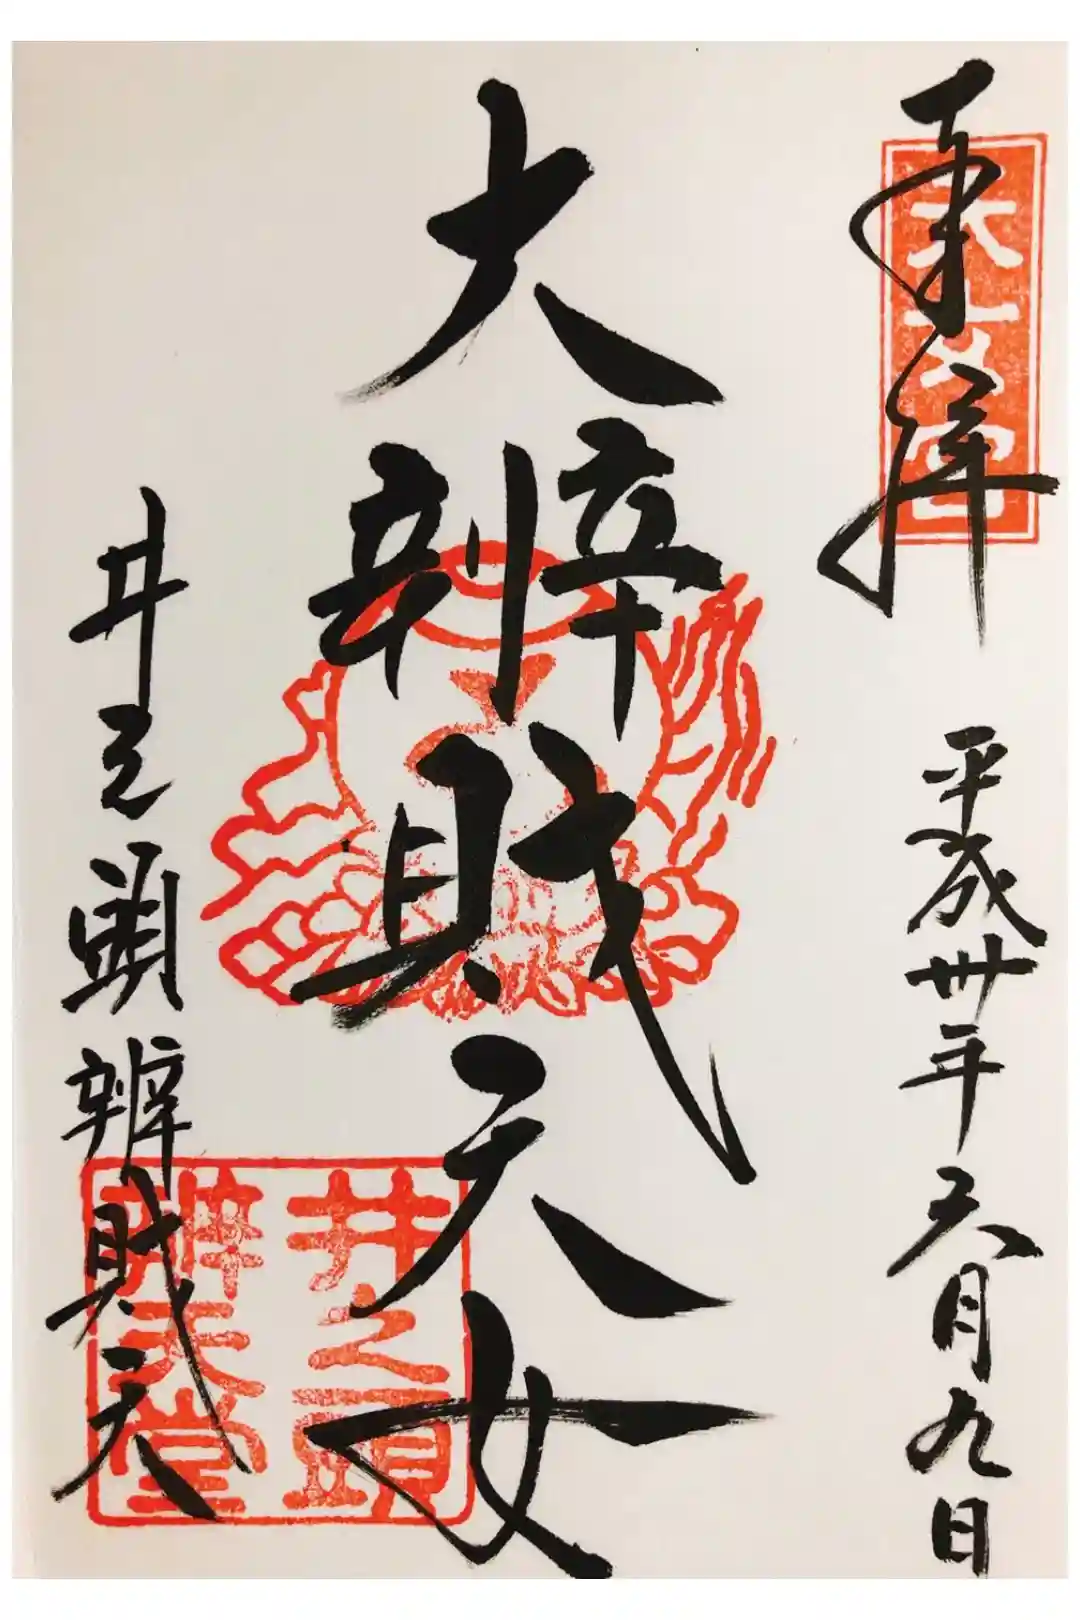 奉拝
平成卅年六月九日
大辨財天女
井之頭辨財天
井之頭
辨天堂